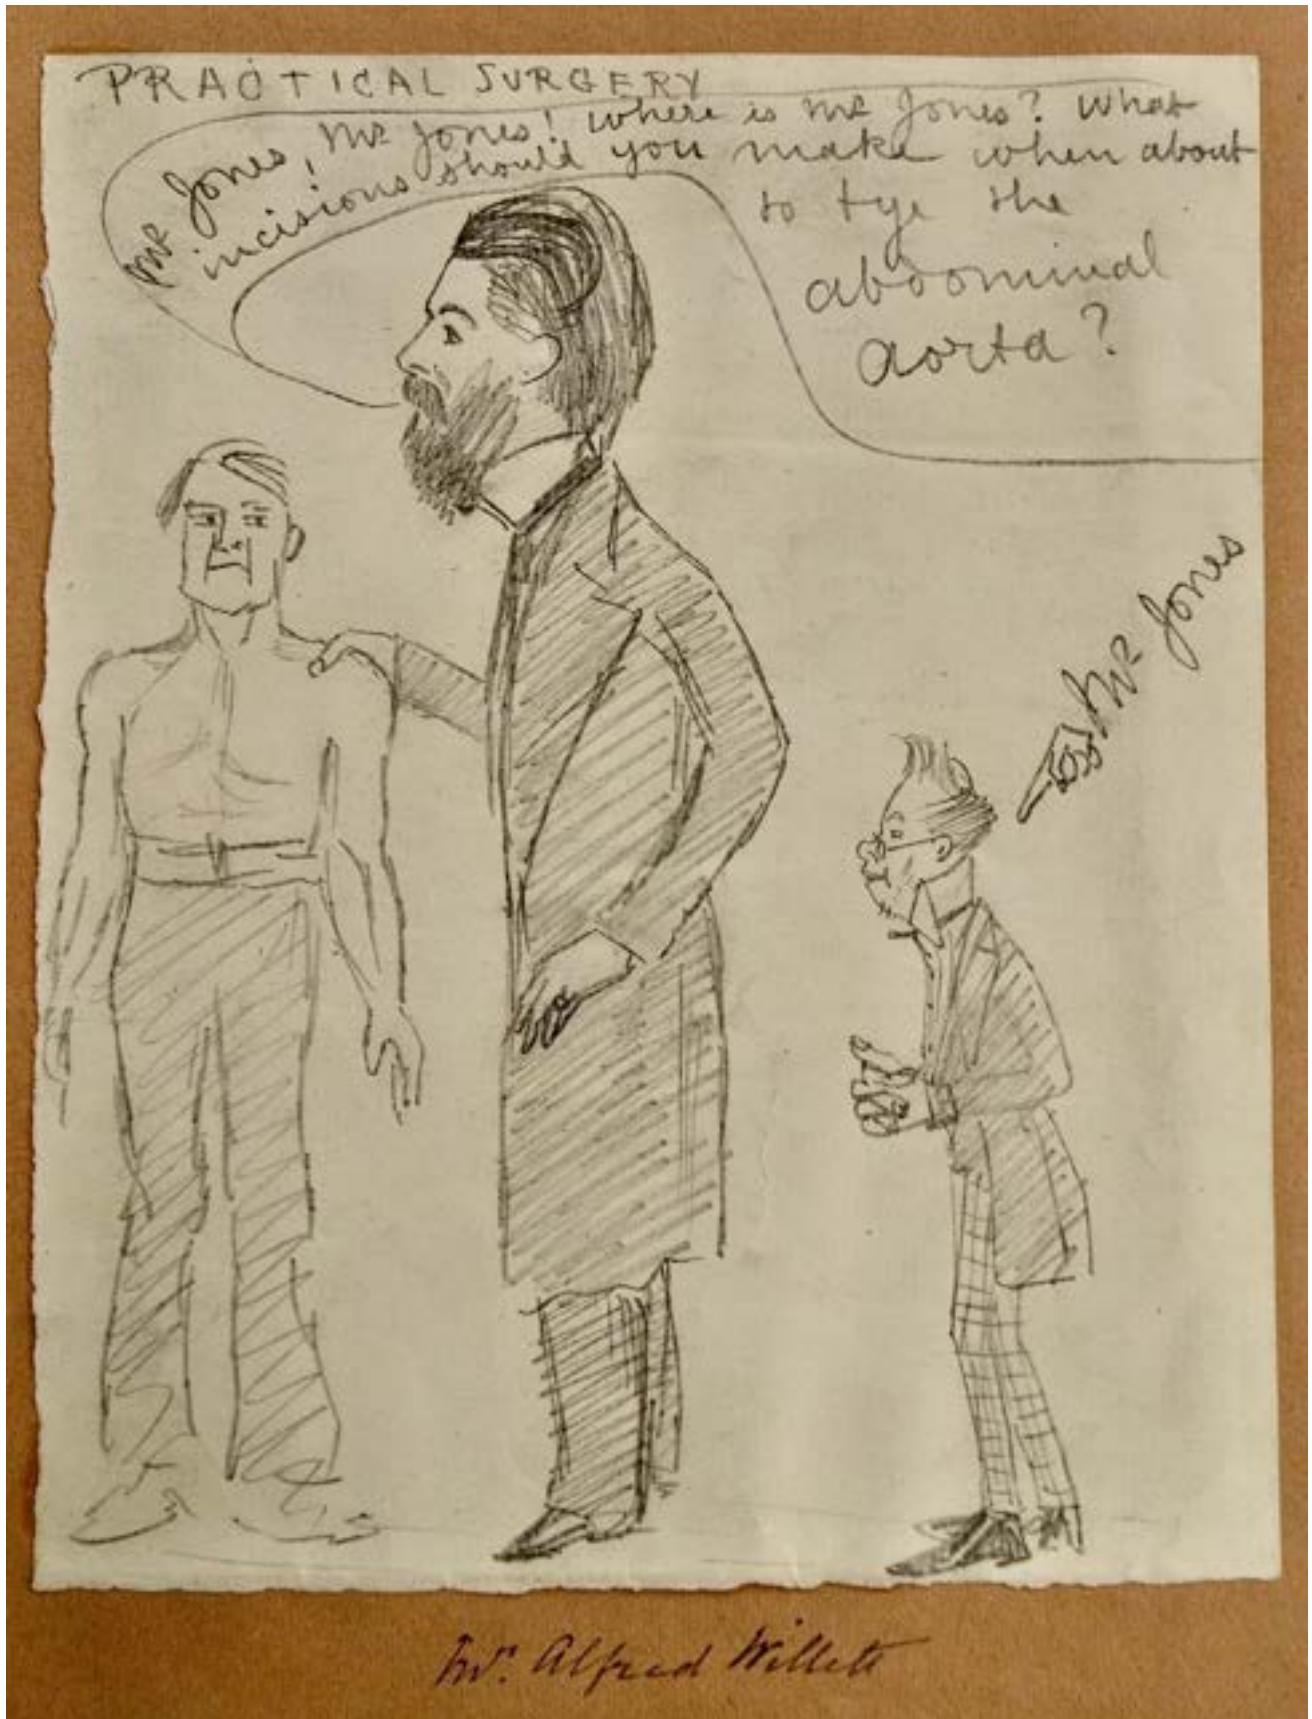 PRACTICAL SURGERY
Mr Jones, Mr Jones! Where is Mr Jones? What
incisions should you make when about
to tye the
abdominal
aorta?
Mr Jones
Mr. Alfred Willett